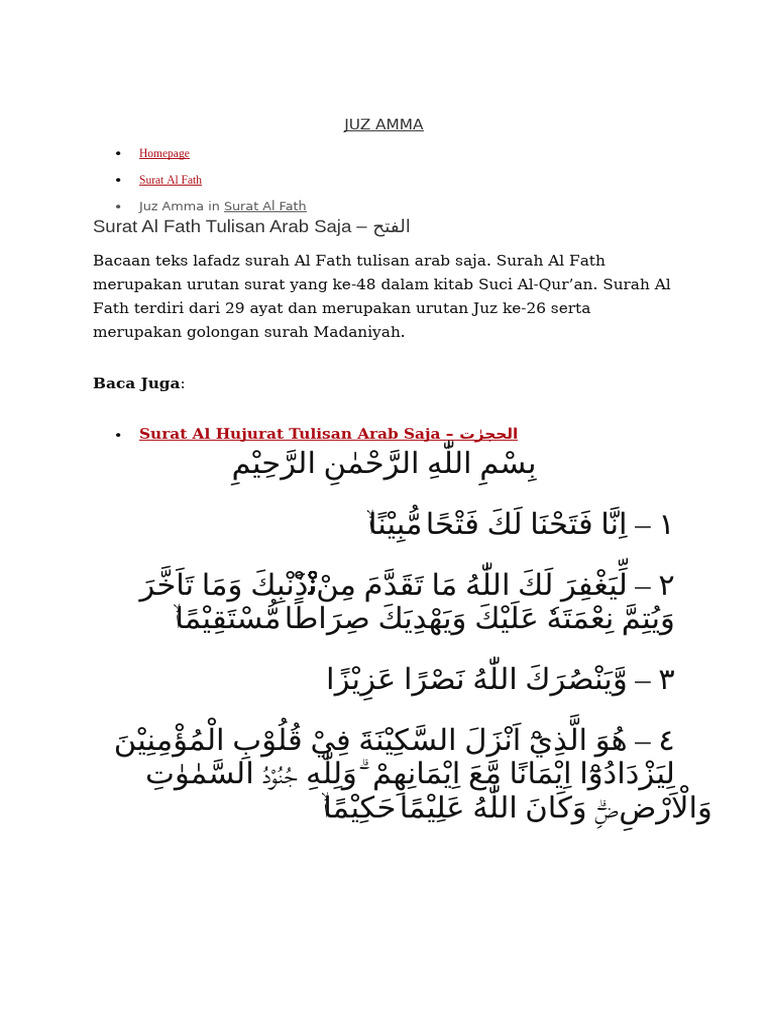 JUZ AMMA
• Homepage
• Surat Al Fath
• Juz Amma in Surat Al Fath
Surat Al Fath Tulisan Arab Saja – الفتح
Bacaan teks lafadz surah Al Fath tulisan arab saja. Surah Al Fath
merupakan urutan surat yang ke-48 dalam kitab Suci Al-Qur’an. Surah Al
Fath terdiri dari 29 ayat dan merupakan urutan Juz ke-26 serta
merupakan golongan surah Madaniyah.
Baca Juga:
• Surat Al Hujurat Tulisan Arab Saja – الحجرٰت
بِسْمِ اللّٰهِ الرَّحْمٰنِ الرَّحِيْمِ
١ – اِنَّا فَتَحْنَا لَكَ فَتْحًا مُّبِيْنًاۙ
٢ – لِّيَغْفِرَ لَكَ اللّٰهُ مَا تَقَدَّمَ مِنْ ذَنْۢبِكَ وَمَا تَاَخَّرَ
وَيُتِمَّ نِعْمَتَهٗ عَلَيْكَ وَيَهْدِيَكَ صِرَاطًا مُّسْتَقِيْمًاۙ
٣ – وَّيَنْصُرَكَ اللّٰهُ نَصْرًا عَزِيْزًا
٤ – هُوَ الَّذِيْٓ اَنْزَلَ السَّكِيْنَةَ فِيْ قُلُوْبِ الْمُؤْمِنِيْنَ
لِيَزْدَادُوْٓا اِيْمَانًا مَّعَ اِيْمَانِهِمْ ۗ وَلِلّٰهِ جُنُوْدُ السَّمٰوٰتِ
وَالْاَرْضِۗ وَكَانَ اللّٰهُ عَلِيْمًا حَكِيْمًاۙ